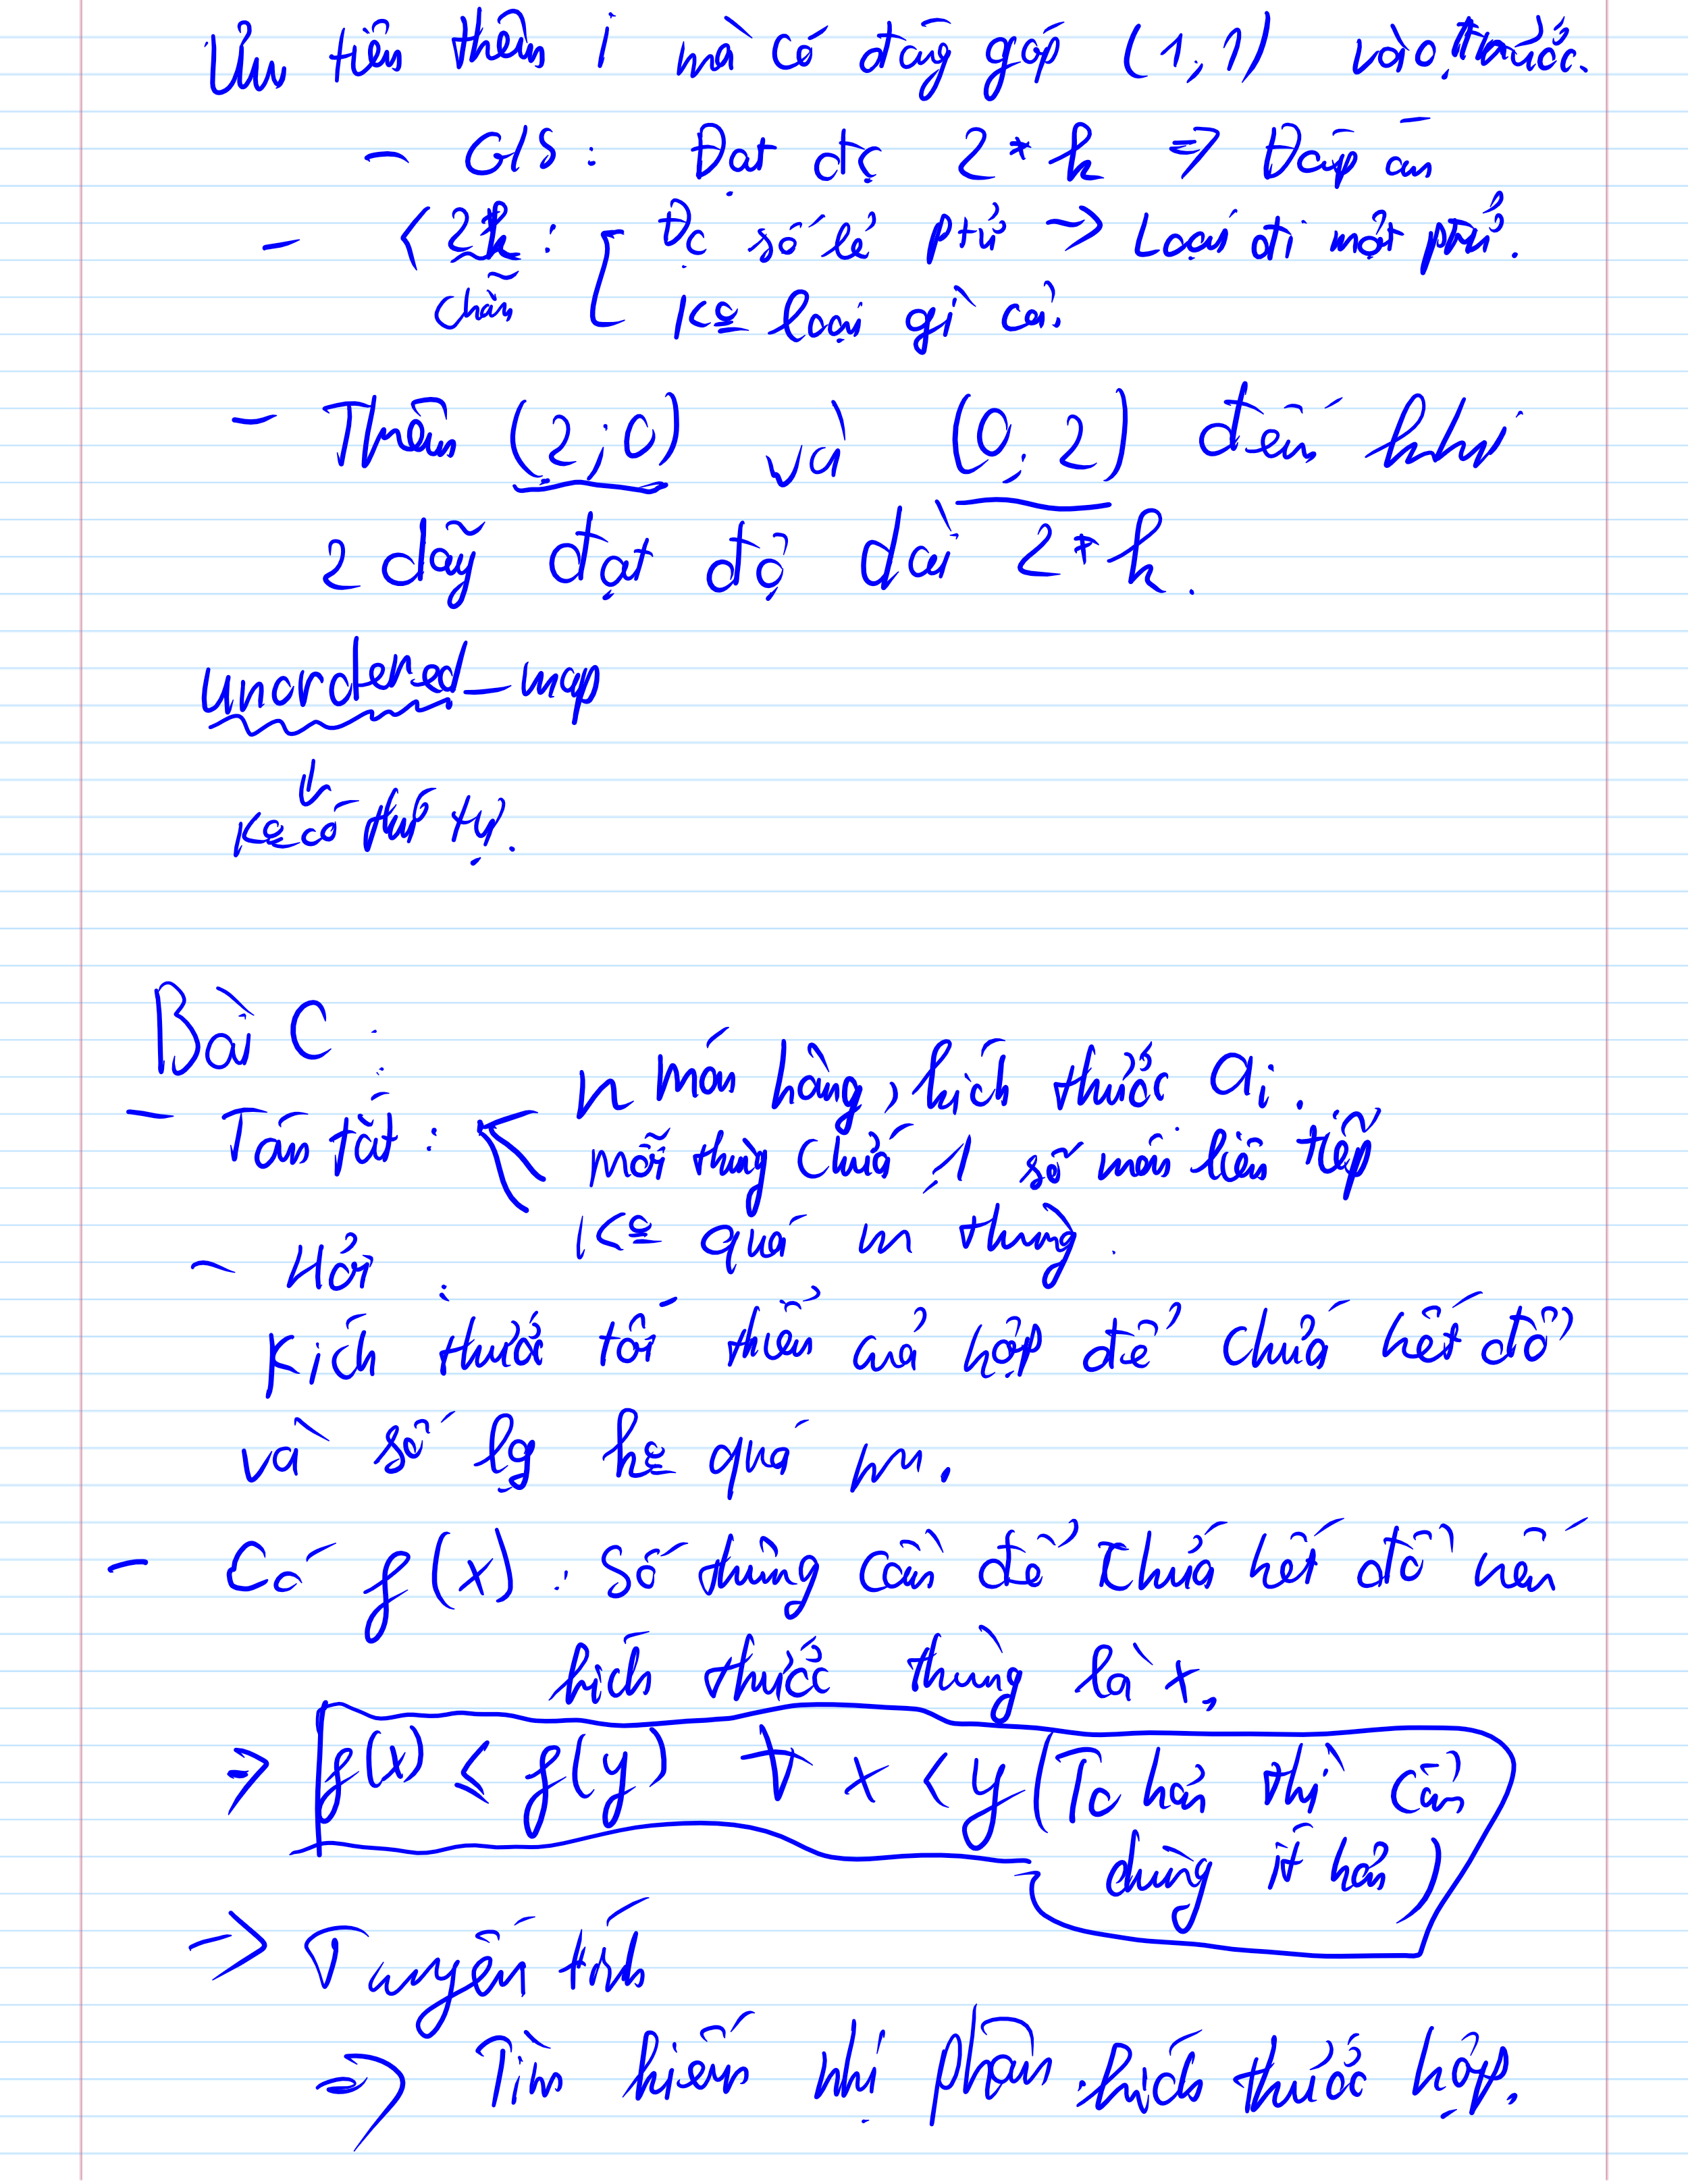 Ưu tiên thêm i mà có đóng góp (1;1) vào trước.
- G/S: Đạt đc 2*k => Đáp án
- < 2k : Đc số lẻ ptử -> Loại đi một ptử.
chẵn Ko loại gì cả.
- Thêm (2;0) và (0;2) đến khi
2 dãy đạt độ dài 2*k.
unordered_map
↓
Ko có thứ tự.
Bài C :
n món hàng, kích thước ai.
- Tóm tắt : mỗi thùng chứa 1 số món liên tiếp
Ko quá m thùng.
- Hỏi :
Kích thước tối thiểu của hộp để chứa hết đồ
và số lg ko quá m.
- Có f(x) : Số thùng cần để chứa hết đồ nếu
kích thước thùng là x,
=> f(x) ≤ f(y) ∀ x < y (To hơn thì cần
dùng ít hơn)
-> Tuyến tính
=> Tìm kiếm nhị phân kích thước hộp.